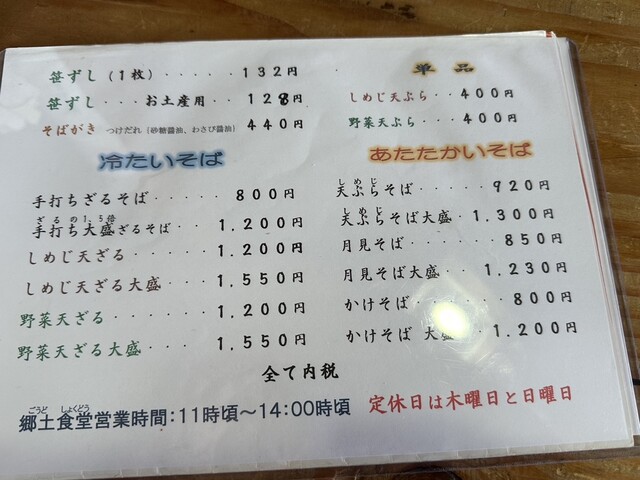 笹ずし（1枚）・・・・・・132円
笹ずし・・・お土産用・・128円
そばがき つけだれ（砂糖醤油、わさび醤油） 440円
冷たいそば
手打ちざるそば・・・・・・800円
ざるの1.5倍
手打ち大盛ざるそば・・・1.200円
しめじ天ざる・・・・・・1.200円
しめじ天ざる大盛・・・・1.550円
野菜天ざる・・・・・・・1.200円
野菜天ざる大盛・・・・・1.550円
単品
しめじ天ぷら・・400円
野菜天ぷら・・400円
あたたかいそば
しめじ
天ぷらそば・・・・・920円
しめじ
天ぷらそば大盛・1.300円
月見そば・・・・・・850円
月見そば大盛・・1.230円
かけそば・・・・・・800円
かけそば 大盛・・1.200円
全て内税
ごうど しょくどう
郷土食堂営業時間：11時頃～14：00時頃
定休日は木曜日と日曜日